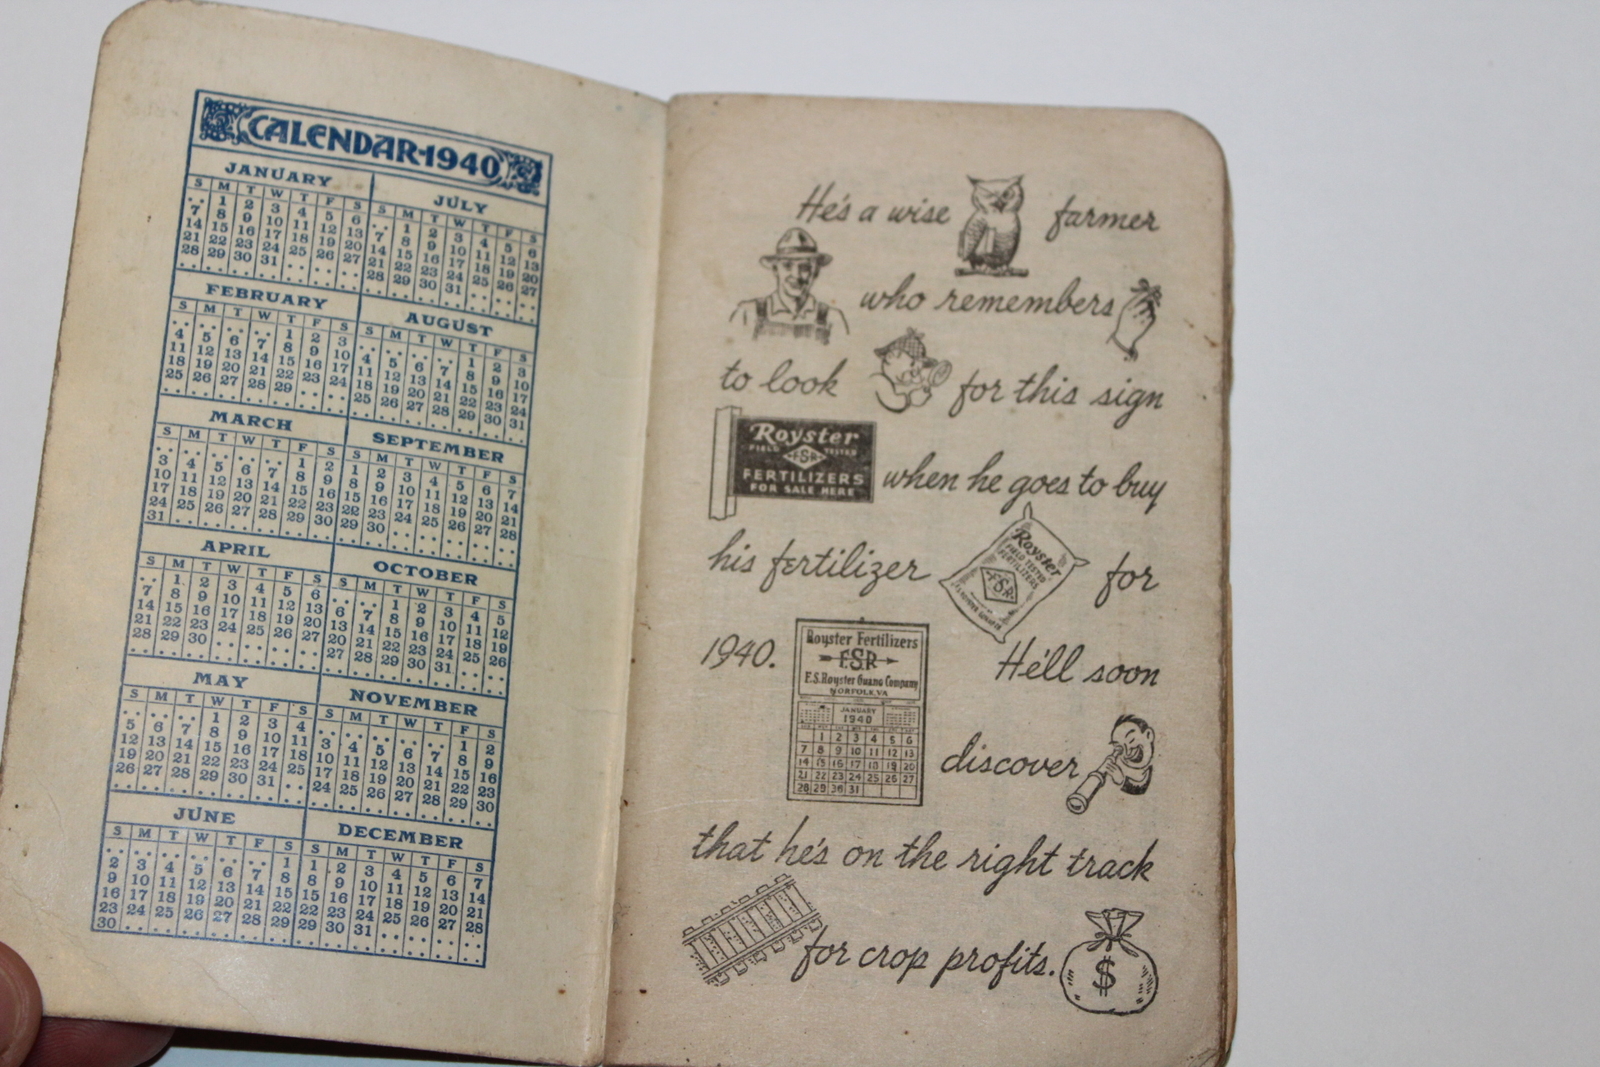 CALENDAR-1940
JANUARY
S M T W T F S
1 2 3 4 5 6
7 8 9 10 11 12 13
14 15 16 17 18 19 20
21 22 23 24 25 26 27
28 29 30 31
FEBRUARY
S M T W T F S
1 2 3
4 5 6 7 8 9 10
11 12 13 14 15 16 17
18 19 20 21 22 23 24
25 26 27 28 29
MARCH
S M T W T F S
1 2
3 4 5 6 7 8 9
10 11 12 13 14 15 16
17 18 19 20 21 22 23
24 25 26 27 28 29 30
31
APRIL
S M T W T F S
1 2 3 4 5 6
7 8 9 10 11 12 13
14 15 16 17 18 19 20
21 22 23 24 25 26 27
28 29 30
MAY
S M T W T F S
1 2 3 4
5 6 7 8 9 10 11
12 13 14 15 16 17 18
19 20 21 22 23 24 25
26 27 28 29 30 31
JUNE
S M T W T F S
1
2 3 4 5 6 7 8
9 10 11 12 13 14 15
16 17 18 19 20 21 22
23 24 25 26 27 28 29
30
JULY
S M T W T F S
1 2 3 4 5 6
7 8 9 10 11 12 13
14 15 16 17 18 19 20
21 22 23 24 25 26 27
28 29 30 31
AUGUST
S M T W T F S
1 2 3
4 5 6 7 8 9 10
11 12 13 14 15 16 17
18 19 20 21 22 23 24
25 26 27 28 29 30 31
SEPTEMBER
S M T W T F S
1 2 3 4 5 6 7
8 9 10 11 12 13 14
15 16 17 18 19 20 21
22 23 24 25 26 27 28
29 30
OCTOBER
S M T W T F S
1 2 3 4 5
6 7 8 9 10 11 12
13 14 15 16 17 18 19
20 21 22 23 24 25 26
27 28 29 30 31
NOVEMBER
S M T W T F S
1 2
3 4 5 6 7 8 9
10 11 12 13 14 15 16
17 18 19 20 21 22 23
24 25 26 27 28 29 30
DECEMBER
S M T W T F S
1 2 3 4 5 6 7
8 9 10 11 12 13 14
15 16 17 18 19 20 21
22 23 24 25 26 27 28
29 30 31
He's a wise farmer
who remembers
to look for this sign
Royster
FIELD FSR TESTED
FERTILIZERS
FOR SALE HERE
when he goes to buy
his fertilizer for
Royster
FIELD TESTED
FERTILIZERS
F.S.R.
1940. He'll soon
Royster Fertilizers
F.S.R
F.S. Royster Guano Company
NORFOLK, VA
JANUARY
1940
1 2 3 4 5 6
7 8 9 10 11 12 13
14 15 16 17 18 19 20
21 22 23 24 25 26 27
28 29 30 31
discover
that he's on the right track
for crop profits.
$